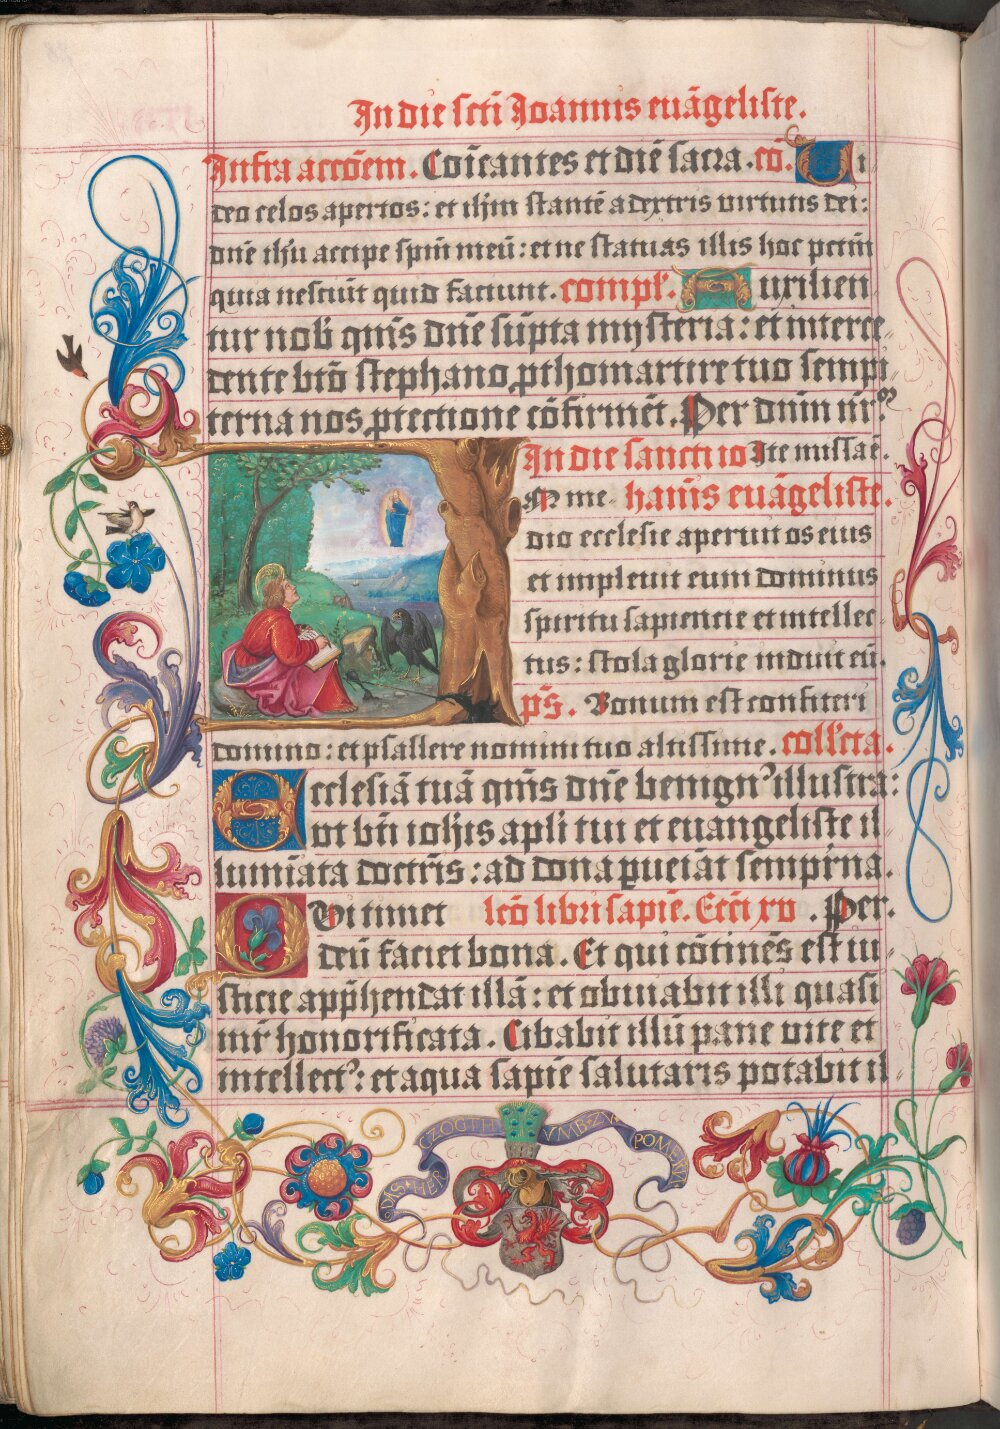 In die scti Joannis euāgeliste.
Infra accōem. Coīcantes et diē sacra. cō. Ui
deo celos apertos: et ihm stantē a dextris uirtutis dei:
dnē ihu accipe spm̄ meū: et ne statuas illis hoc petm̄
quia nesciūt quid faciunt. compl'. Auxilien
tur nob' qm̄s dnē sūpta mysteria: et interce
dente btō stephano pthomartire tuo sempi
terna nos ptectione cōfirmēt. Per dnm nr̄
In die sancti io Ite missaē.
In me hanīs euāgeliste.
dio ecclesie aperuit os eius
et impleuit eum dominus
spiritu sapiencie et intellec
tus: stola glorie induit eū.
ps̄. Bonum est confiteri
domino: et psallere nomini tuo altissime. coll'cta.
Ecclesiā tuā qm̄s dnē benignꝰ illustra:
ut bti iohis apli tui et euangeliste il
lumīata doctrīs: ad dona pueiāt sempr̄na.
Qui timet lcō libri sapiē. Ecci xv. Per.
deū faciet bona. Et qui cōtinēs est iu
sticie app̄hendat illā: et obuiabit illi quasi
mr̄ honorificata. Cibabit illū pane uite et
intellectꝰ: et aqua sapiē salutaris potabit il
DAS HERCZOGTHVMB ZV POMERN